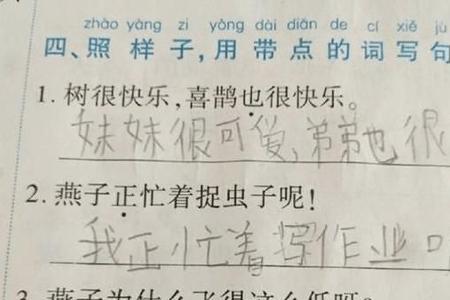 zhào yàng zi yòng dài diǎn de cí xiě jù
四、照样子,用带点的词写句
1. 树很快乐,喜鹊也很快乐。
妹妹很可爱,弟弟也很
2. 燕子正忙着捉虫子呢!
我正忙着写作业
3. 燕子为什么飞得这么低呀?